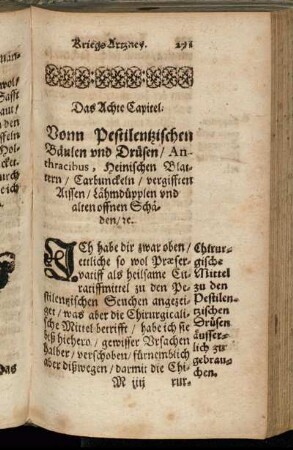 Kriegs Artzney. 191
Das Achte Capitel.
Vonn Pestilentzischen
Bäulen vnd Drüsen / An-
thracibus, Heinischen Blat-
tern / Carbunckeln / vergifften
Aissen / Lähmdüpplen vnd
alten offnen Schä-
den / ꝛc.
JCh habe dir zwar oben /
ettliche so wol Præser-
vatiff als heilsame Cu-
ratiffmittel zu den Pe-
stilenzischen Seuchen angezei-
get / was aber die Chirurgicali-
sche Mittel betrifft / habe ich sie
biß hiehero / gewisser Vrsachen
halber / verschoben / fürnemblich
aber dißwegen / darmit die Chi-
M iiij rur-
Chirur-
gische
Mittel
zu den
Pestilen-
tzischen
Drüsen
äusser-
lich zu
gebrau-
chen.